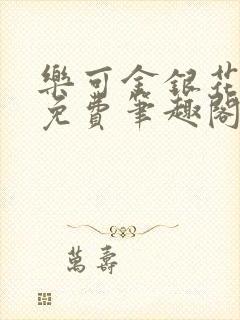 樂可金銀花
免費筆趣閣
萬壽